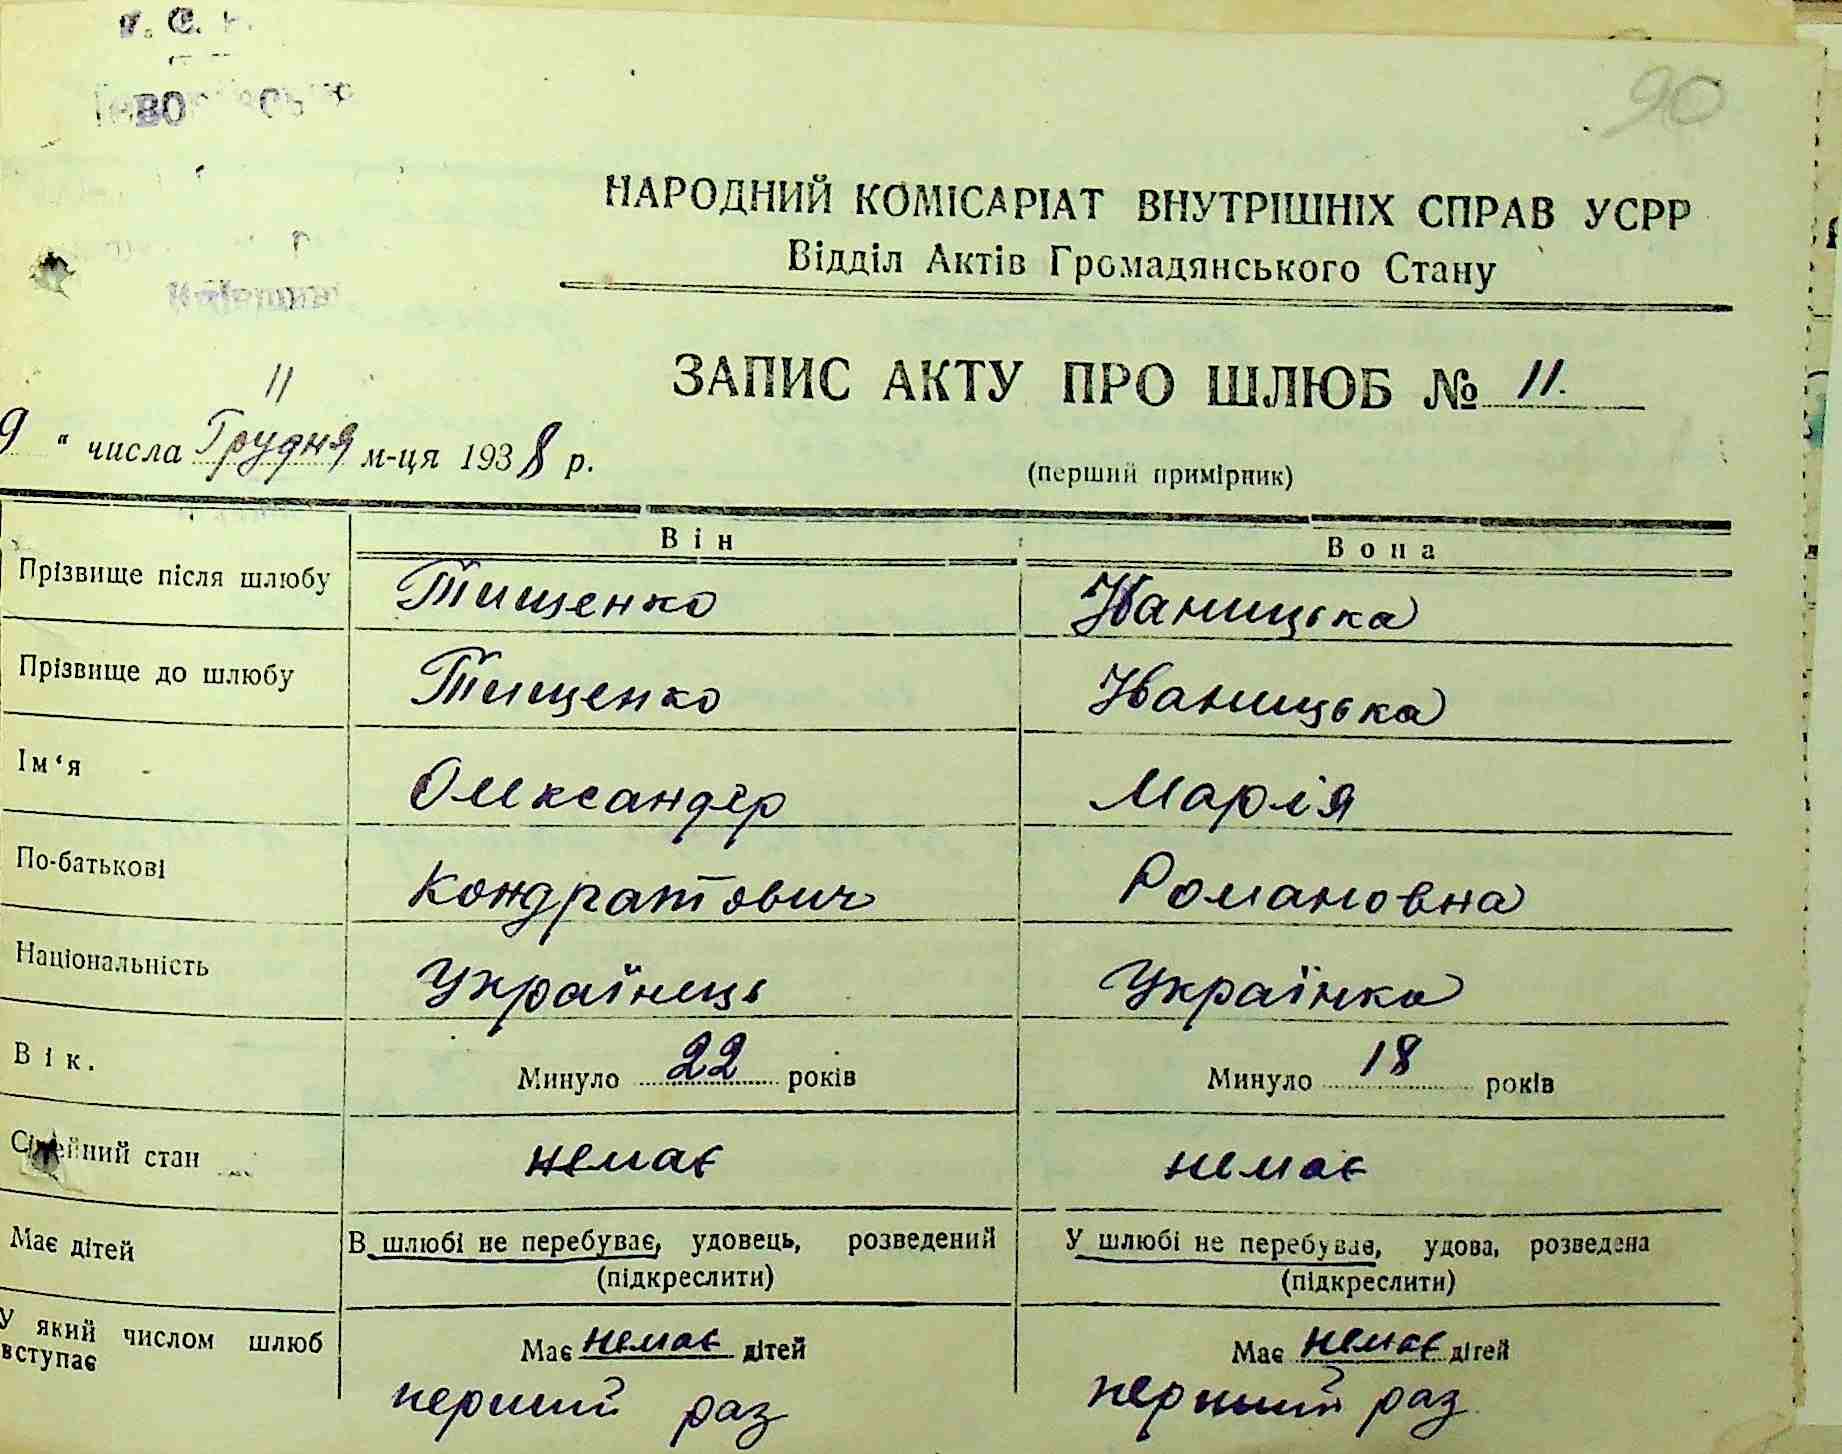 90
НАРОДНИЙ КОМІСАРІАТ ВНУТРІШНІХ СПРАВ УСРР
Відділ Актів Громадянського Стану
ЗАПИС АКТУ ПРО ШЛЮБ № 11.
11
9 " числа Грудня м-ця 1938 р.
(перший примірник)
Він Вона
Прізвище після шлюбу Тищенко Іваницька
Прізвище до шлюбу Тищенко Іваницька
Ім'я Олександер Марія
По-батькові Кондратович Романовна
Національність Українець Українка
Вік. Минуло 22 років Минуло 18 років
Сімейний стан немає немає
Має дітей В шлюбі не перебуває, удовець, розведений У шлюбі не перебуває, удова, розведена
(підкреслити) (підкреслити)
У який числом шлюб вступає Має немає дітей Має немає дітей
перший раз перший раз